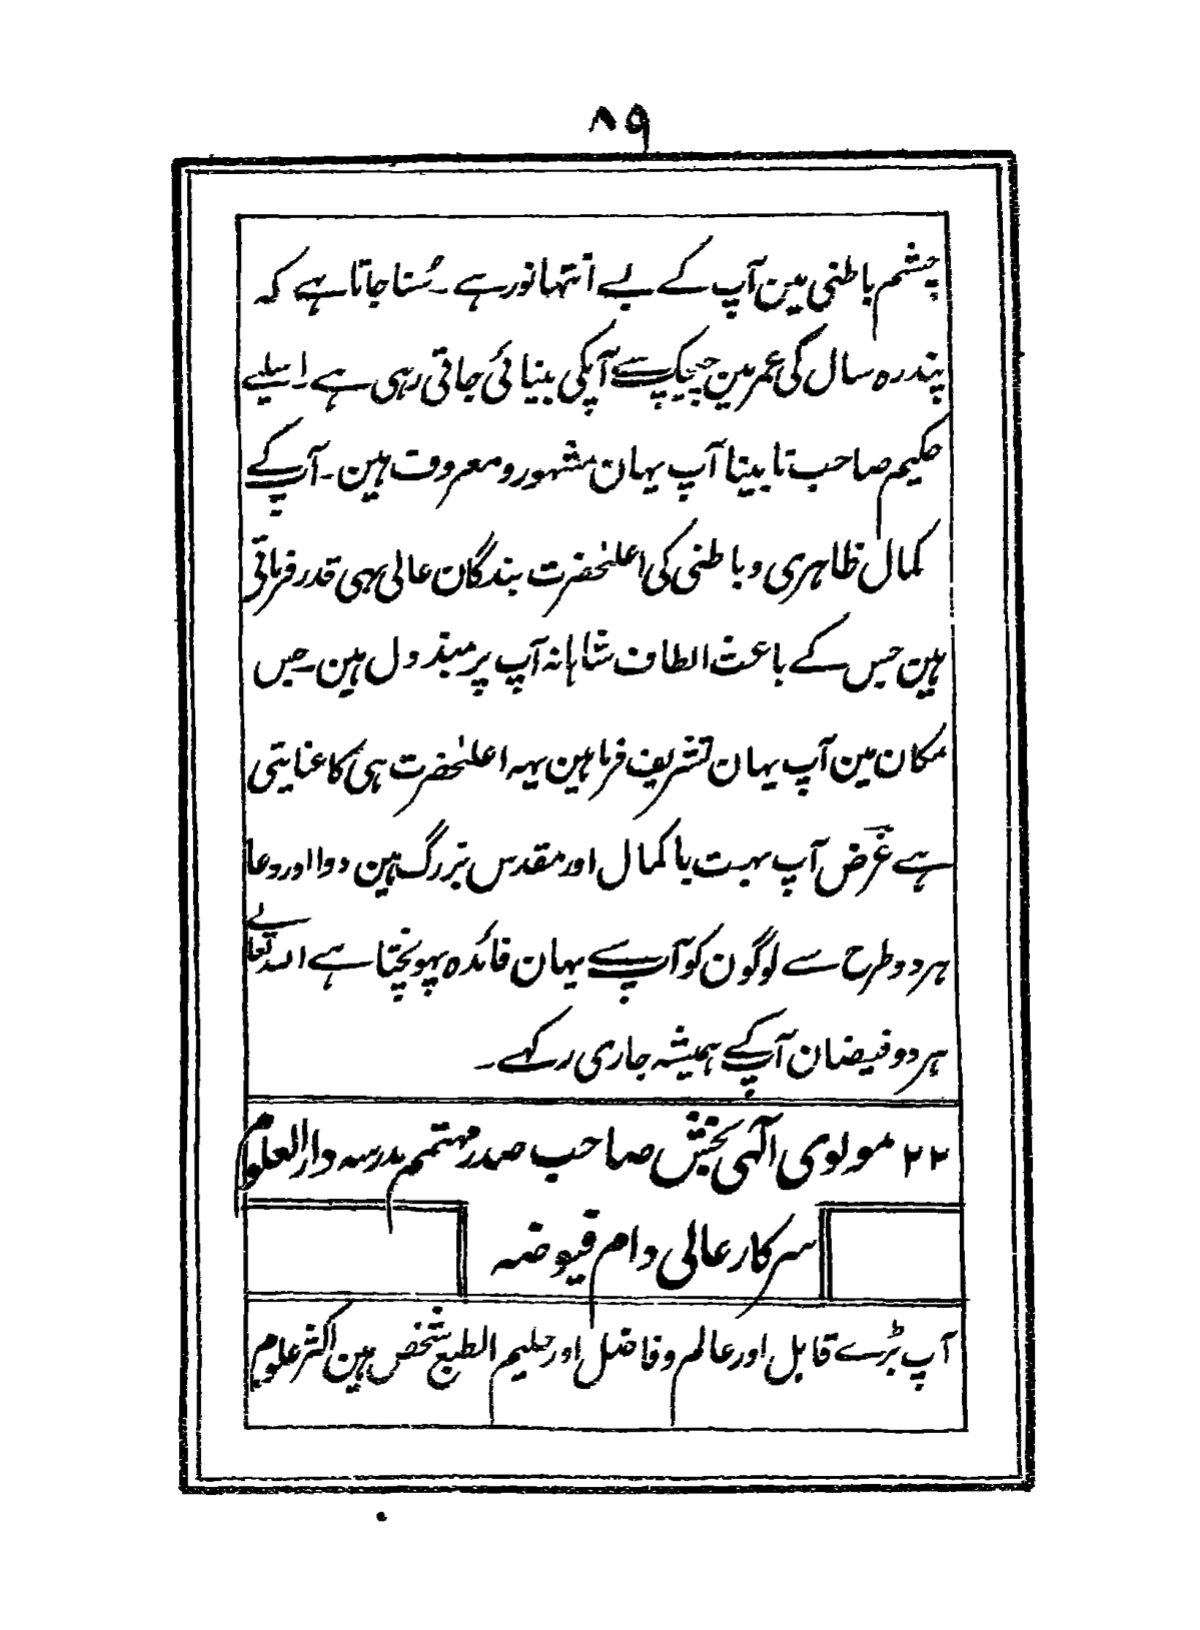 ۸۹
چشم باطنی مین آپ کے بے انتہا نور ہے ۔ سُنا جاتا ہے کہ
پندرہ سال کی عمر مین چیچک سے آپکی بینائی جاتی رہی ہے اسلیے
حکیم صاحب نابینا آپ یہان مشہور و معروف ہین ۔ آپ کے
کمال ظاہری و باطنی کی اعلیٰحضرت بندگان عالی بہی قدر فرماتی
ہین جس کے باعث الطاف شاہانہ آپ پر مبذول ہین ۔ جس
مکان مین آپ یہان تشریف فرما ہین یہہ اعلیٰحضرت ہی کا عنایتی
ہے غرض آپ بہت باکمال اور مقدس بزرگ ہین دوا اور دعا
ہر دو طرح سے لوگون کو آپ سے یہان فائدہ پہونچتا ہے اللہ تعالے
ہر دو فیضان آپ کے ہمیشہ جاری رکہے ۔
۲۲ مولوی الٰہی بخش صاحب صدر مہتمم مدرسہ دار العلوم
سرکار عالی دام فیوضہ
آپ بڑے قابل اور عالم و فاضل اور حلیم الطبع شخص ہین اکثر علوم